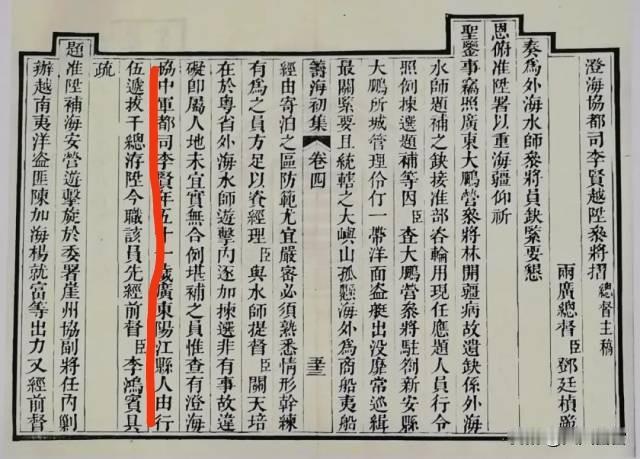 澄海協都司李賢越陞叅將摺 總督主稿
兩廣總督臣鄧廷楨跪
奏為外海水師叅將員缺緊要懇
恩俯准陞署以重海疆仰祈
聖鑒事竊照廣東大鵬營叅將林開疆病故遺缺係外海
水師題補之缺接准部咨輪用現任應題人員行令
照例揀選題補等因臣查大鵬營叅將駐劄新安縣
大鵬所城管理伶仃一帶洋面盜艇出沒靡常巡緝
最關緊要且統轄之大嶼山孤懸海外為商船夷船
籌海初集 卷四
經由寄泊之區防範尤宜嚴密必須熟悉情形幹練
有為之員方足以資經理臣與水師提督臣關天培
在於粵省外海水師遊擊內逐加揀選非有事故違
礙即屬人地未宜實無合例堪補之員惟查有澄海
協中軍都司李賢年五十一歲廣東陽江縣人由行
伍遞拔千總洊陞今職該員先經前督臣李鴻賓具
疏
題准陞補海安營遊擊旋於委署崖州協副將任內剿
辦越南夷洋盜匪陳加海楊就富等出力又經前督